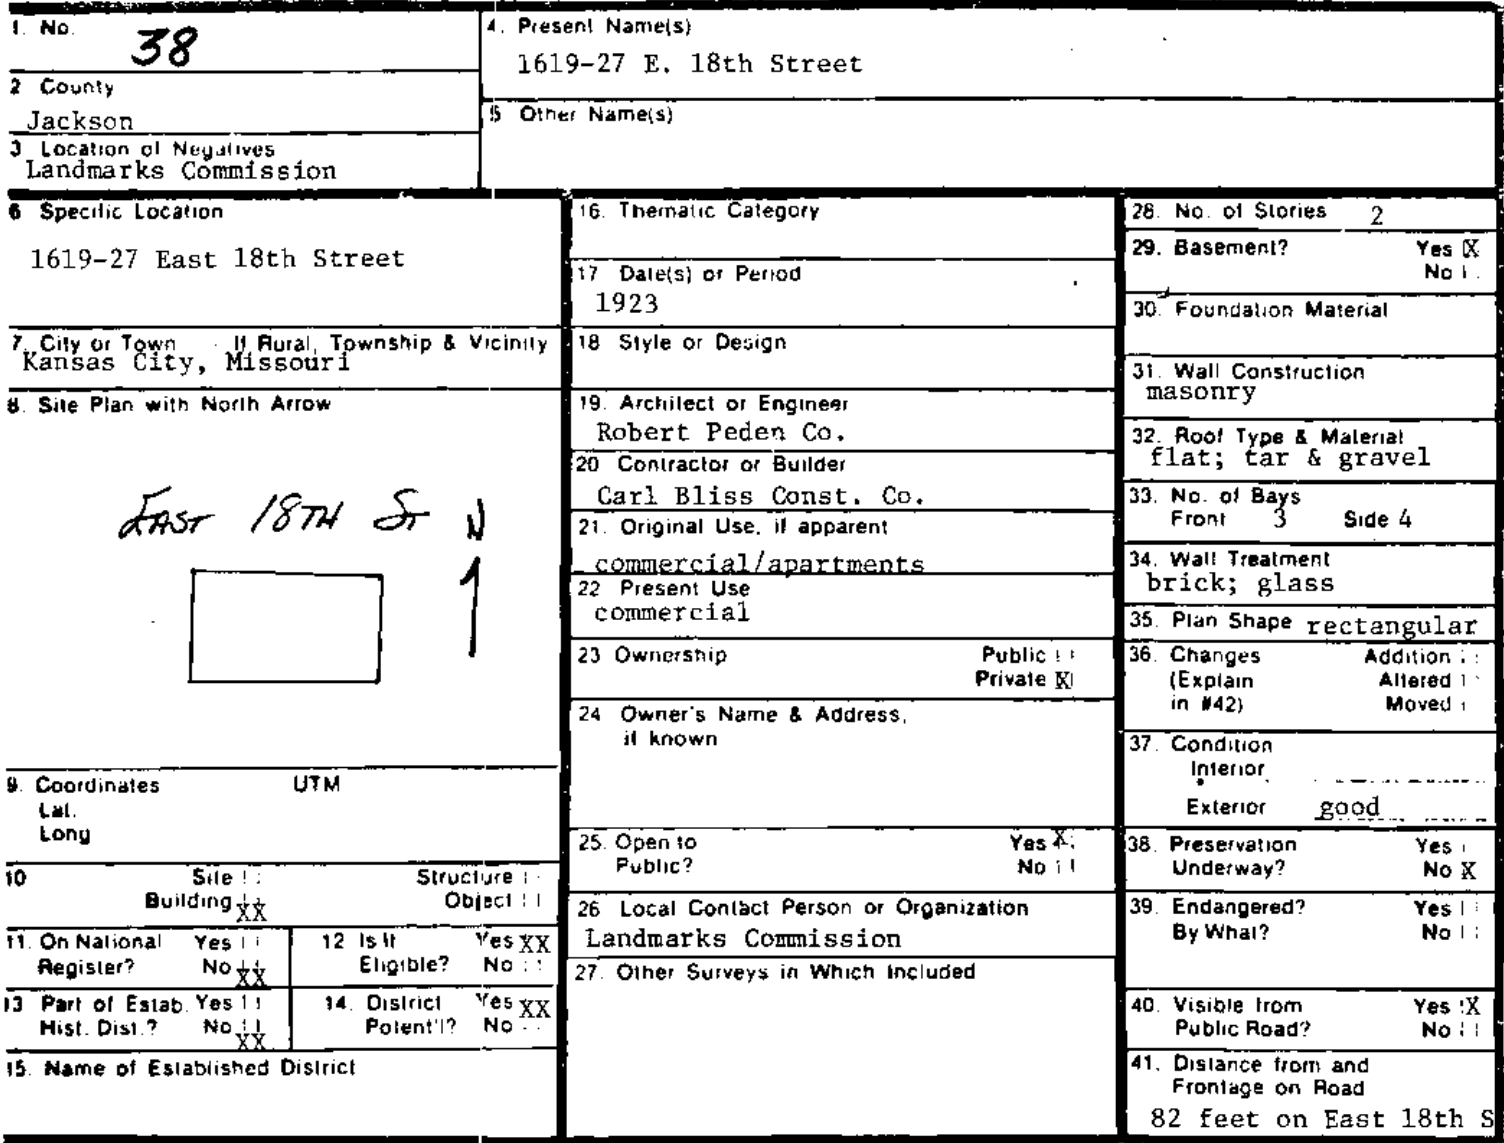 1. No. 38
2 County
Jackson
3 Location of Negatives
Landmarks Commission
4. Present Name(s)
1619-27 E. 18th Street
5 Other Name(s)
6 Specific Location
1619-27 East 18th Street
7. City or Town If Rural, Township & Vicinity
Kansas City, Missouri
8. Site Plan with North Arrow
EAST 18TH ST N
9. Coordinates UTM
Lat.
Long
10 Site Structure
Building XX Object
11. On National Yes
Register? No XX
12 Is It Yes XX
Eligible? No
13 Part of Estab. Yes
Hist. Dist.? No XX
14. District Yes XX
Potent'l? No
15. Name of Established District
16. Thematic Category
17 Date(s) or Period
1923
18 Style or Design
19. Architect or Engineer
Robert Peden Co.
20 Contractor or Builder
Carl Bliss Const. Co.
21. Original Use, if apparent
commercial/apartments
22 Present Use
commercial
23 Ownership Public
Private X
24 Owner's Name & Address,
if known
25. Open to Yes X
Public? No
26 Local Contact Person or Organization
Landmarks Commission
27. Other Surveys in Which Included
28. No. of Stories 2
29. Basement? Yes X
No
30. Foundation Material
31. Wall Construction
masonry
32. Roof Type & Material
flat; tar & gravel
33. No. of Bays
Front 3 Side 4
34. Wall Treatment
brick; glass
35. Plan Shape rectangular
36. Changes Addition
(Explain Altered
in #42) Moved
37. Condition
Interior
Exterior good
38. Preservation Yes
Underway? No X
39. Endangered? Yes
By What? No
40. Visible from Yes X
Public Road? No
41. Distance from and
Frontage on Road
82 feet on East 18th S